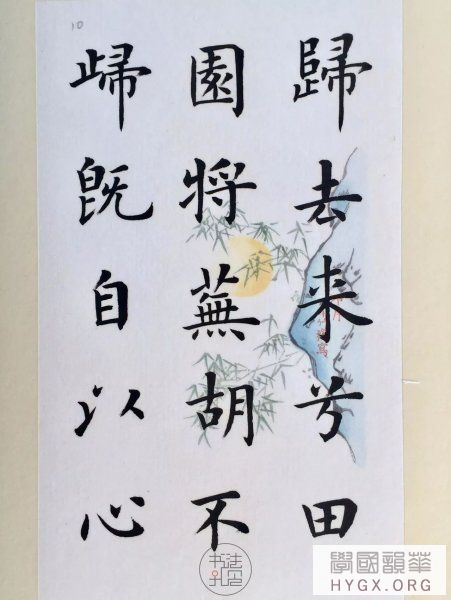 歸去来兮田
園将蕪胡不
歸既自以心
10
書法
華韻國學
HYGX.ORG